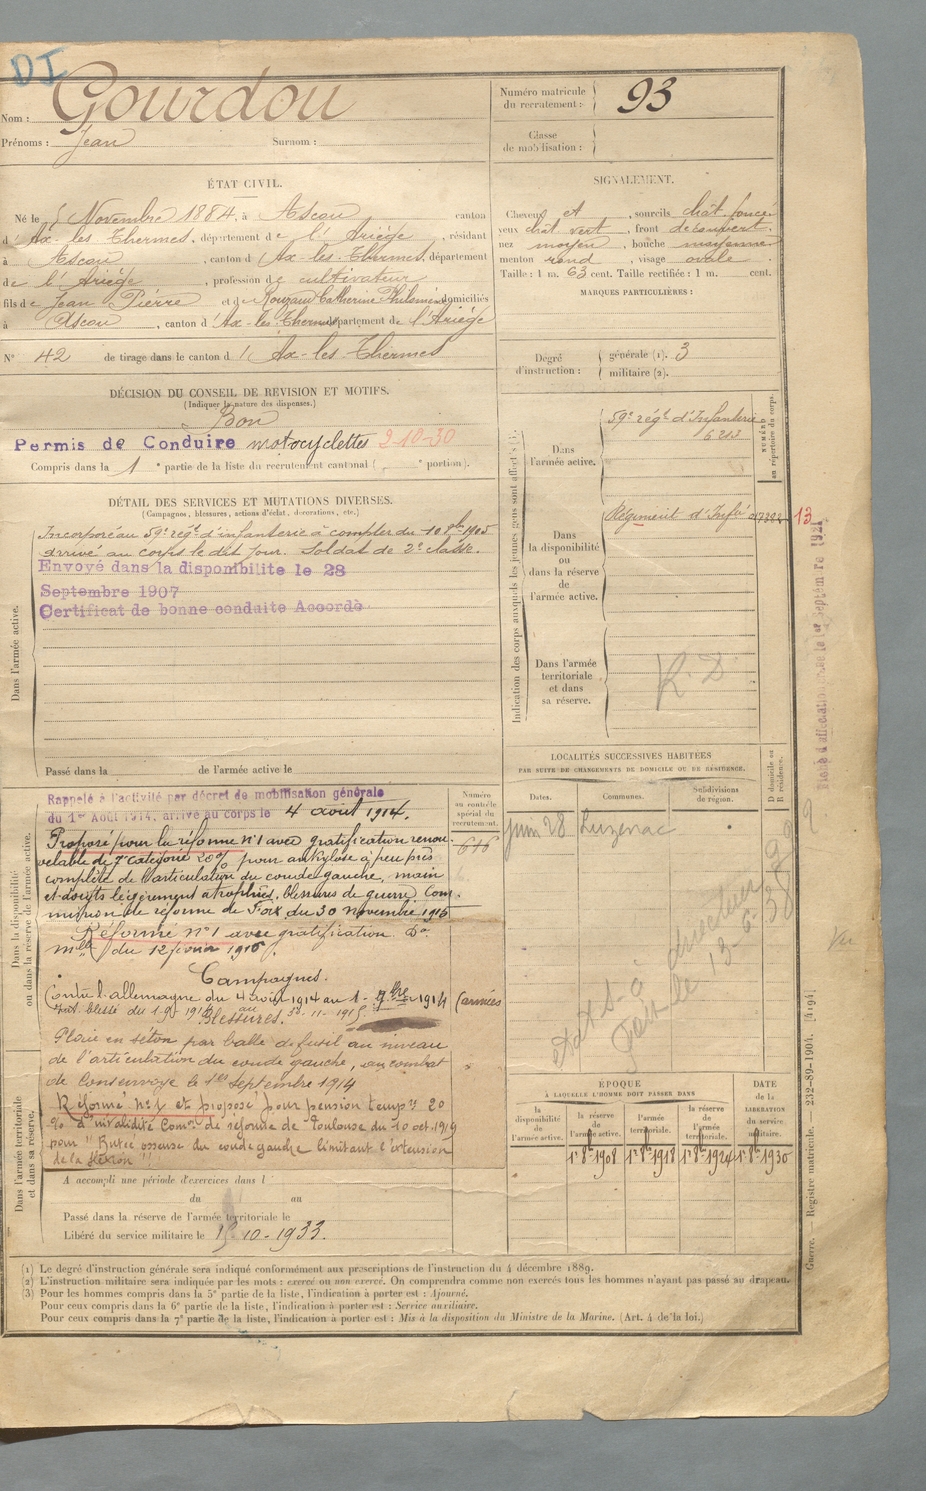 DI
Nom : Gourdou
Prénoms : Jean Surnom :
Numéro matricule du recrutement : 93
Classe de mobilisation :
ÉTAT CIVIL.
Né le 5 Novembre 1884, à Ascou canton
d'Ax-les-Thermes, département de l'Ariège, résidant
à Ascou, canton d'Ax-les-Thermes, département
de l'Ariège, profession de cultivateur
fils de Jean Pierre et de Rouzaud Catherine Philomène domiciliés
à Ascou, canton d'Ax-les-Thermes, département de l'Ariège
N° 42 de tirage dans le canton d'Ax-les-Thermes
SIGNALEMENT.
Cheveux et, sourcils chât. foncé
yeux chât. vert, front découvert.
nez moyen, bouche moyenne
menton rond, visage ovale.
Taille : 1 m. 63 cent. Taille rectifiée : 1 m. cent.
MARQUES PARTICULIÈRES :
Degré d'instruction : générale (1). 3
militaire (2).
DÉCISION DU CONSEIL DE REVISION ET MOTIFS.
(Indiquer la nature des dispenses.)
Bon
Permis de Conduire motocyclettes 2-10-30
Compris dans la 1e partie de la liste du recrutement cantonal ( e portion).
DÉTAIL DES SERVICES ET MUTATIONS DIVERSES.
(Campagnes, blessures, actions d'éclat, décorations, etc.)
Dans l'armée active.
Incorporé au 59e régt d'infanterie à compter du 1 08bre 1905
arrivé au corps le dit jour. Soldat de 2e classe.
Envoyé dans la disponibilite le 28
Septembre 1907
Certificat de bonne conduite Accordé
Passé dans la de l'armée active le
Indication des corps auxquels les jeunes gens sont affectés
NUMÉRO au répertoire du corps.
Dans l'armée active.
59e régt d'Infanterie
Dans la disponibilité ou dans la réserve de l'armée active.
Régiment d'Infie
13
Dans l'armée territoriale et dans sa réserve.
R. D
LOCALITÉS SUCCESSIVES HABITÉES
PAR SUITE DE CHANGEMENTS DE DOMICILE OU DE RÉSIDENCE.
D domicile ou R résidence.
Dates. Communes. Subdivisions de région.
juin 28 Luzenac
Dans la disponibilité ou dans la réserve de l'armée active.
Numéro au contrôle spécial du recrutement.
616
Rappelé à l'activité par décret de mobilisation générale
du 1er Août 1914, arrivé au corps le 4 août 1914.
Proposé pour la réforme n°1 avec gratification renou
velable de 7e catégorie 20% pour ankylose à peu près
complète de l'articulation du coude gauche, main
et doigts légèrement atrophiés, blessures de guerre Com
mission de réforme de Foix du 30 novembre 1915
Réformé n°1 avec gratification Don
mlle du 12 février 1916
Campagnes.
Contre l'allemagne du 4 août 1914 au 1- 9bre 1914 (armées
Int. blessé du 1-9-1914 au 30-11-1915
Blessures.
Plaie en séton par balle de fusil au niveau
de l'articulation du coude gauche, au combat
de Consenvoye le 1er Septembre 1914
Dans l'armée territoriale et dans sa réserve.
Réformé n°1 et proposé pour pension tempre 20
% d'invalidité Comon de réforme de Toulouse du 10 oct. 1919
pour "Butée osseuse du coude gauche limitant l'extension
de la flexion"
A accompli une période d'exercices dans l
du au
Passé dans la réserve de l'armée territoriale le
Libéré du service militaire le 15-10-1933.
Foix le 13-6-38
Vu
ÉPOQUE
À LAQUELLE L'HOMME DOIT PASSER DANS
DATE de la LIBÉRATION du service militaire.
la disponibilité de l'armée active.
la réserve de l'armée active.
l'armée territoriale.
la réserve de l'armée territoriale.
1r 8bre 1908 1r 8bre 1918 1r 8bre 1924 1r 8bre 1930
Guerre. — Registre matricule. — 232-89-1904. [4194]
(1) Le degré d'instruction générale sera indiqué conformément aux prescriptions de l'instruction du 4 décembre 1889.
(2) L'instruction militaire sera indiquée par les mots : exercé ou non exercé. On comprendra comme non exercés tous les hommes n'ayant pas passé au drapeau.
(3) Pour les hommes compris dans la 5e partie de la liste, l'indication à porter est : Ajourné.
Pour ceux compris dans la 6e partie de la liste, l'indication à porter est : Service auxiliaire.
Pour ceux compris dans la 7e partie de la liste, l'indication à porter est : Mis à la disposition du Ministre de la Marine. (Art. 4 de la loi.)